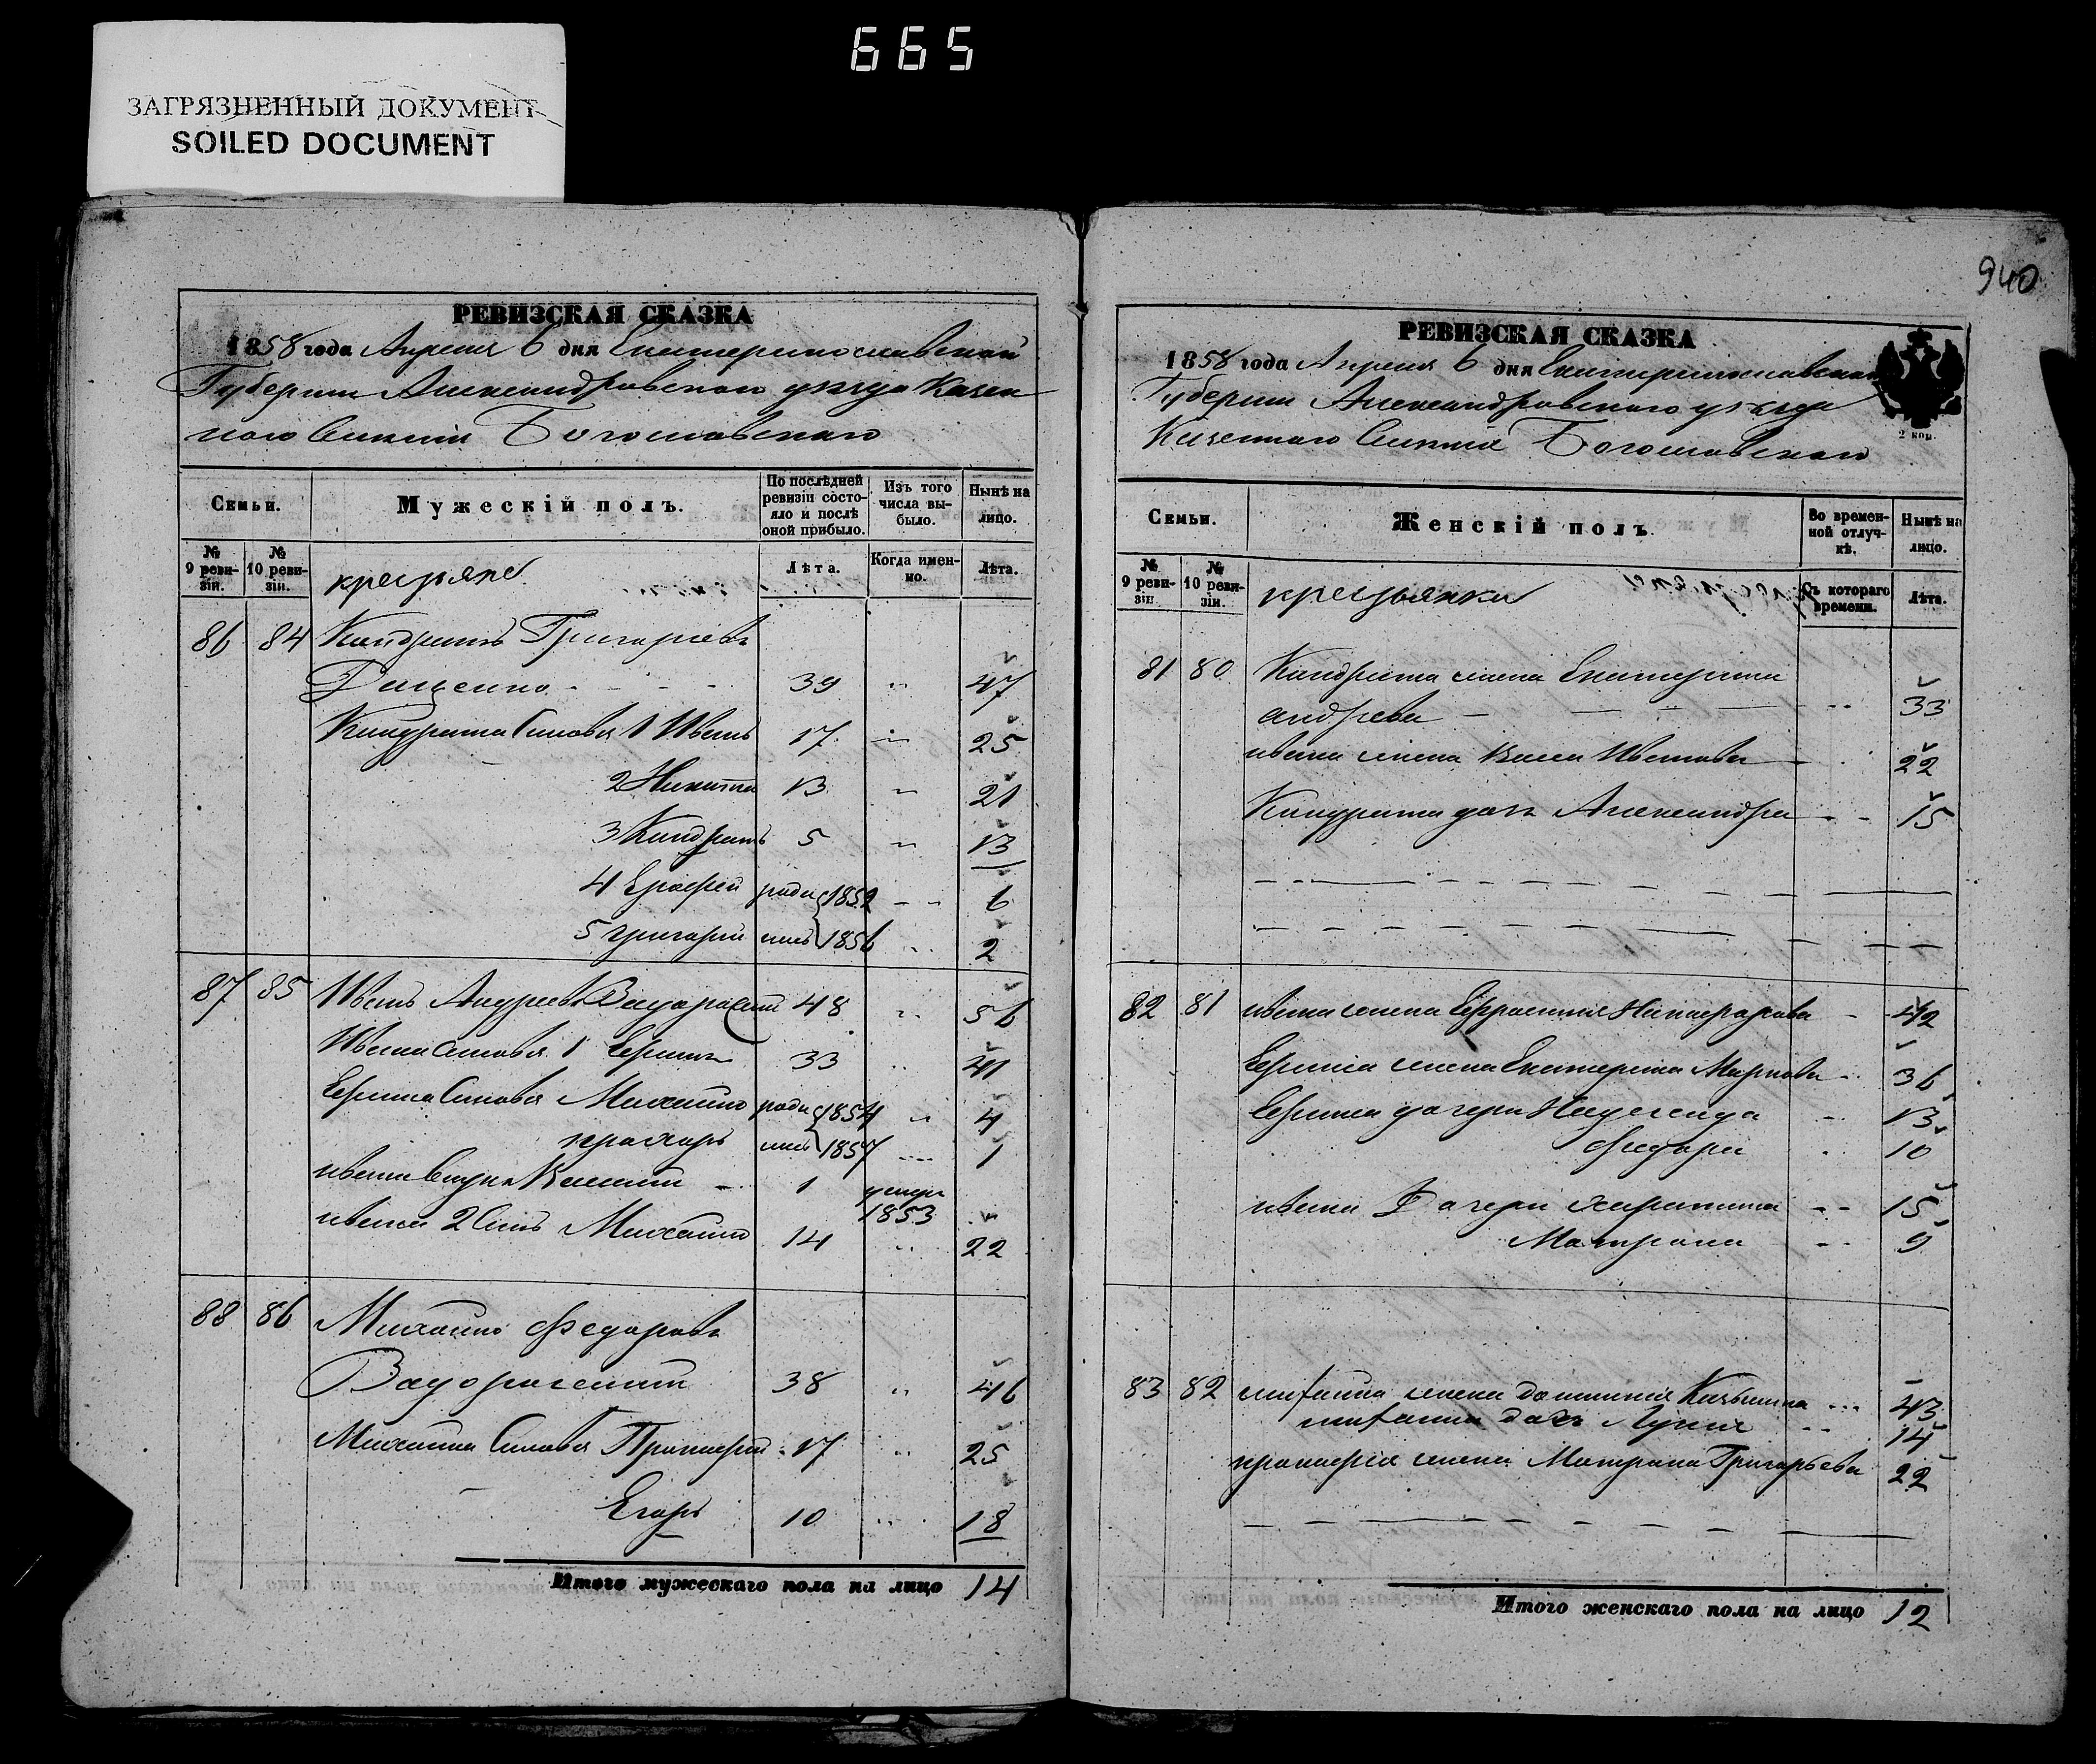 665
ЗАГРЯЗНЕННЫЙ ДОКУМЕНТ
SOILED DOCUMENT
940
РЕВИЗСКАЯ СКАЗКА
1858 года Апреля 6 дня Екатеринославской
Губернии Александровскаго уезда Казен
наго Селения Богословскаго
Семьи.
Мужескій полъ.
По послѣдней ревизіи состояло и послѣ оной прибыло.
Изъ того числа выбыло.
Нынѣ на лицо.
№ 9 ревизіи.
№ 10 ревизіи.
крестьяне
Лѣта.
Когда именно.
Лѣта.
86 84 Кондратъ Григорьевъ
Дащенко - - - 39 " 47
Кондрата Сыновья 1 Иванъ 17 " 25
2 Никита 13 " 21
3 Кондратъ 5 " 13
4 Ерофей роди 1852 - - 6
5 Григорий лись 1856 " 2
87 85 Иванъ Андреевъ 48 " 56
Ивана Сыновья 1 33 " 41
Сыновья Михаило роди 1854 " 4
прохоръ лись 1857 " 1
ивана внукъ 1 умеръ 1853 "
ивана 2 Сынъ Михаило 14 " 22
88 86 Михайло Федоровъ
38 " 46
Михаила Сыновья Прокофий 17 " 25
Егоръ 10 " 18
Итого мужескаго пола на лицо 14
РЕВИЗСКАЯ СКАЗКА
1858 года Апреля 6 дня Екатеринославской
Губернии Александровскаго уезда
Казеннаго Селения Богословскаго
2 коп.
Семьи.
Женскій полъ.
Во временной отлучкѣ.
Нынѣ на лицо.
№ 9 ревизіи.
№ 10 ревизіи.
крестьянки
Съ котораго времени.
Лѣта.
81 80 Кондрата жена Екатерина
андреева - - - - " 33
ивана жена Иванова - 22
Кондрата дочь Александра - - 15
82 81 ивана жена Ефросиния Никифорова - 42
жена Екатерина Маркова - 36
дочери Надежда - 13
Федора 10
ивана дочери харитина - - 15
Матрона - - 9
83 82 михаила жена 43
михаила дочь 14
прокофия жена Матрона Григорьева 22
Итого женскаго пола на лицо 12